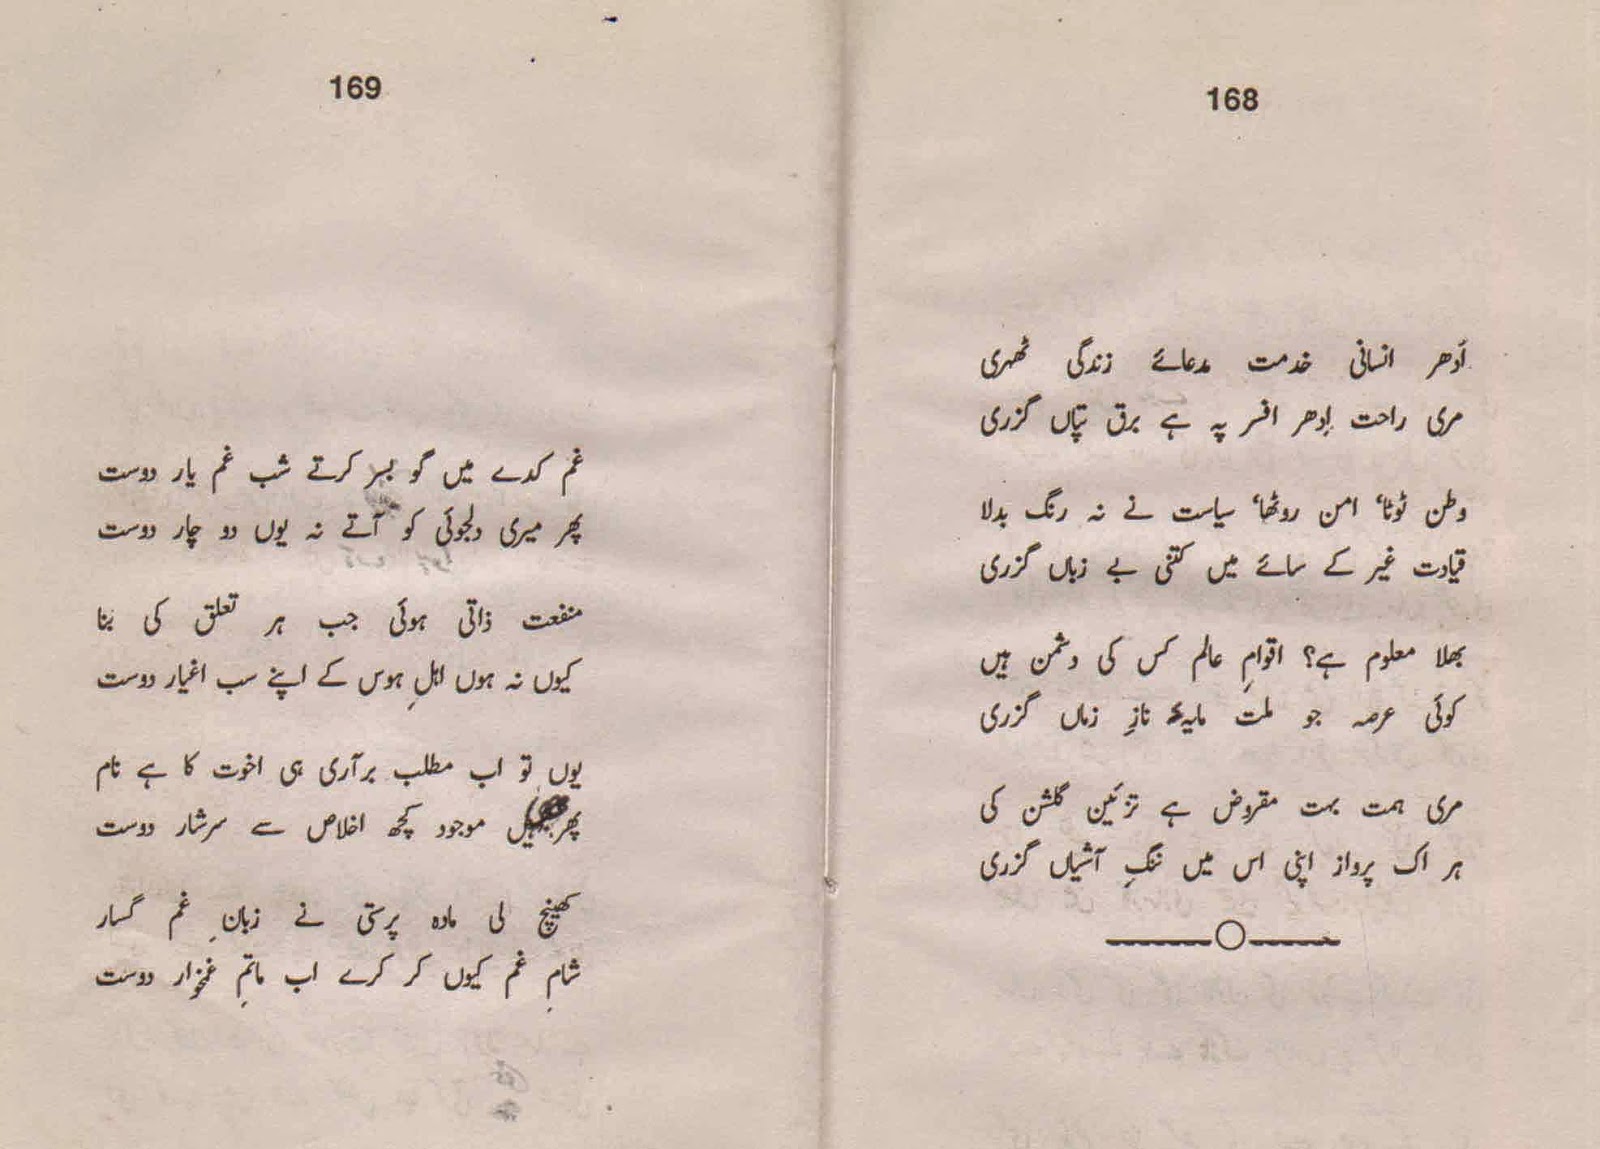 168
اُدھر انسانی خدمت مدعائے زندگی ٹھہری
مری راحت اِدھر افسر پہ ہے برق تپاں گزری
وطن ٹوٹا، امن روٹھا، سیاست نے نہ رنگ بدلا
قیادت غیر کے سائے میں کتنی بے زباں گزری
بھلا معلوم ہے؟ اقوامِ عالم کس کی دشمن ہیں
کوئی عرصہ جو ملت مایہء نازِ زماں گزری
مری ہمت بہت مقروض ہے تزئین گلشن کی
ہر اک پرواز اپنی اس میں ننگِ آشیاں گزری
169
غم کدے میں گو بسر کرتے شب غم یار دوست
پھر میری دلجوئی کو آتے نہ یوں دو چار دوست
منفعت ذاتی ہوئی جب ہر تعلق کی بنا
کیوں نہ ہوں اہلِ ہوس کے اپنے سب اغیار دوست
یوں تو اب مطلب برآری ہی اخوت کا ہے نام
پھر ہیں موجود کچھ اخلاص سے سرشار دوست
کھینچ لی مادہ پرستی نے زبانِ غم گسار
شامِ غم کیوں کر کرے اب ماتمِ غمخوار دوست